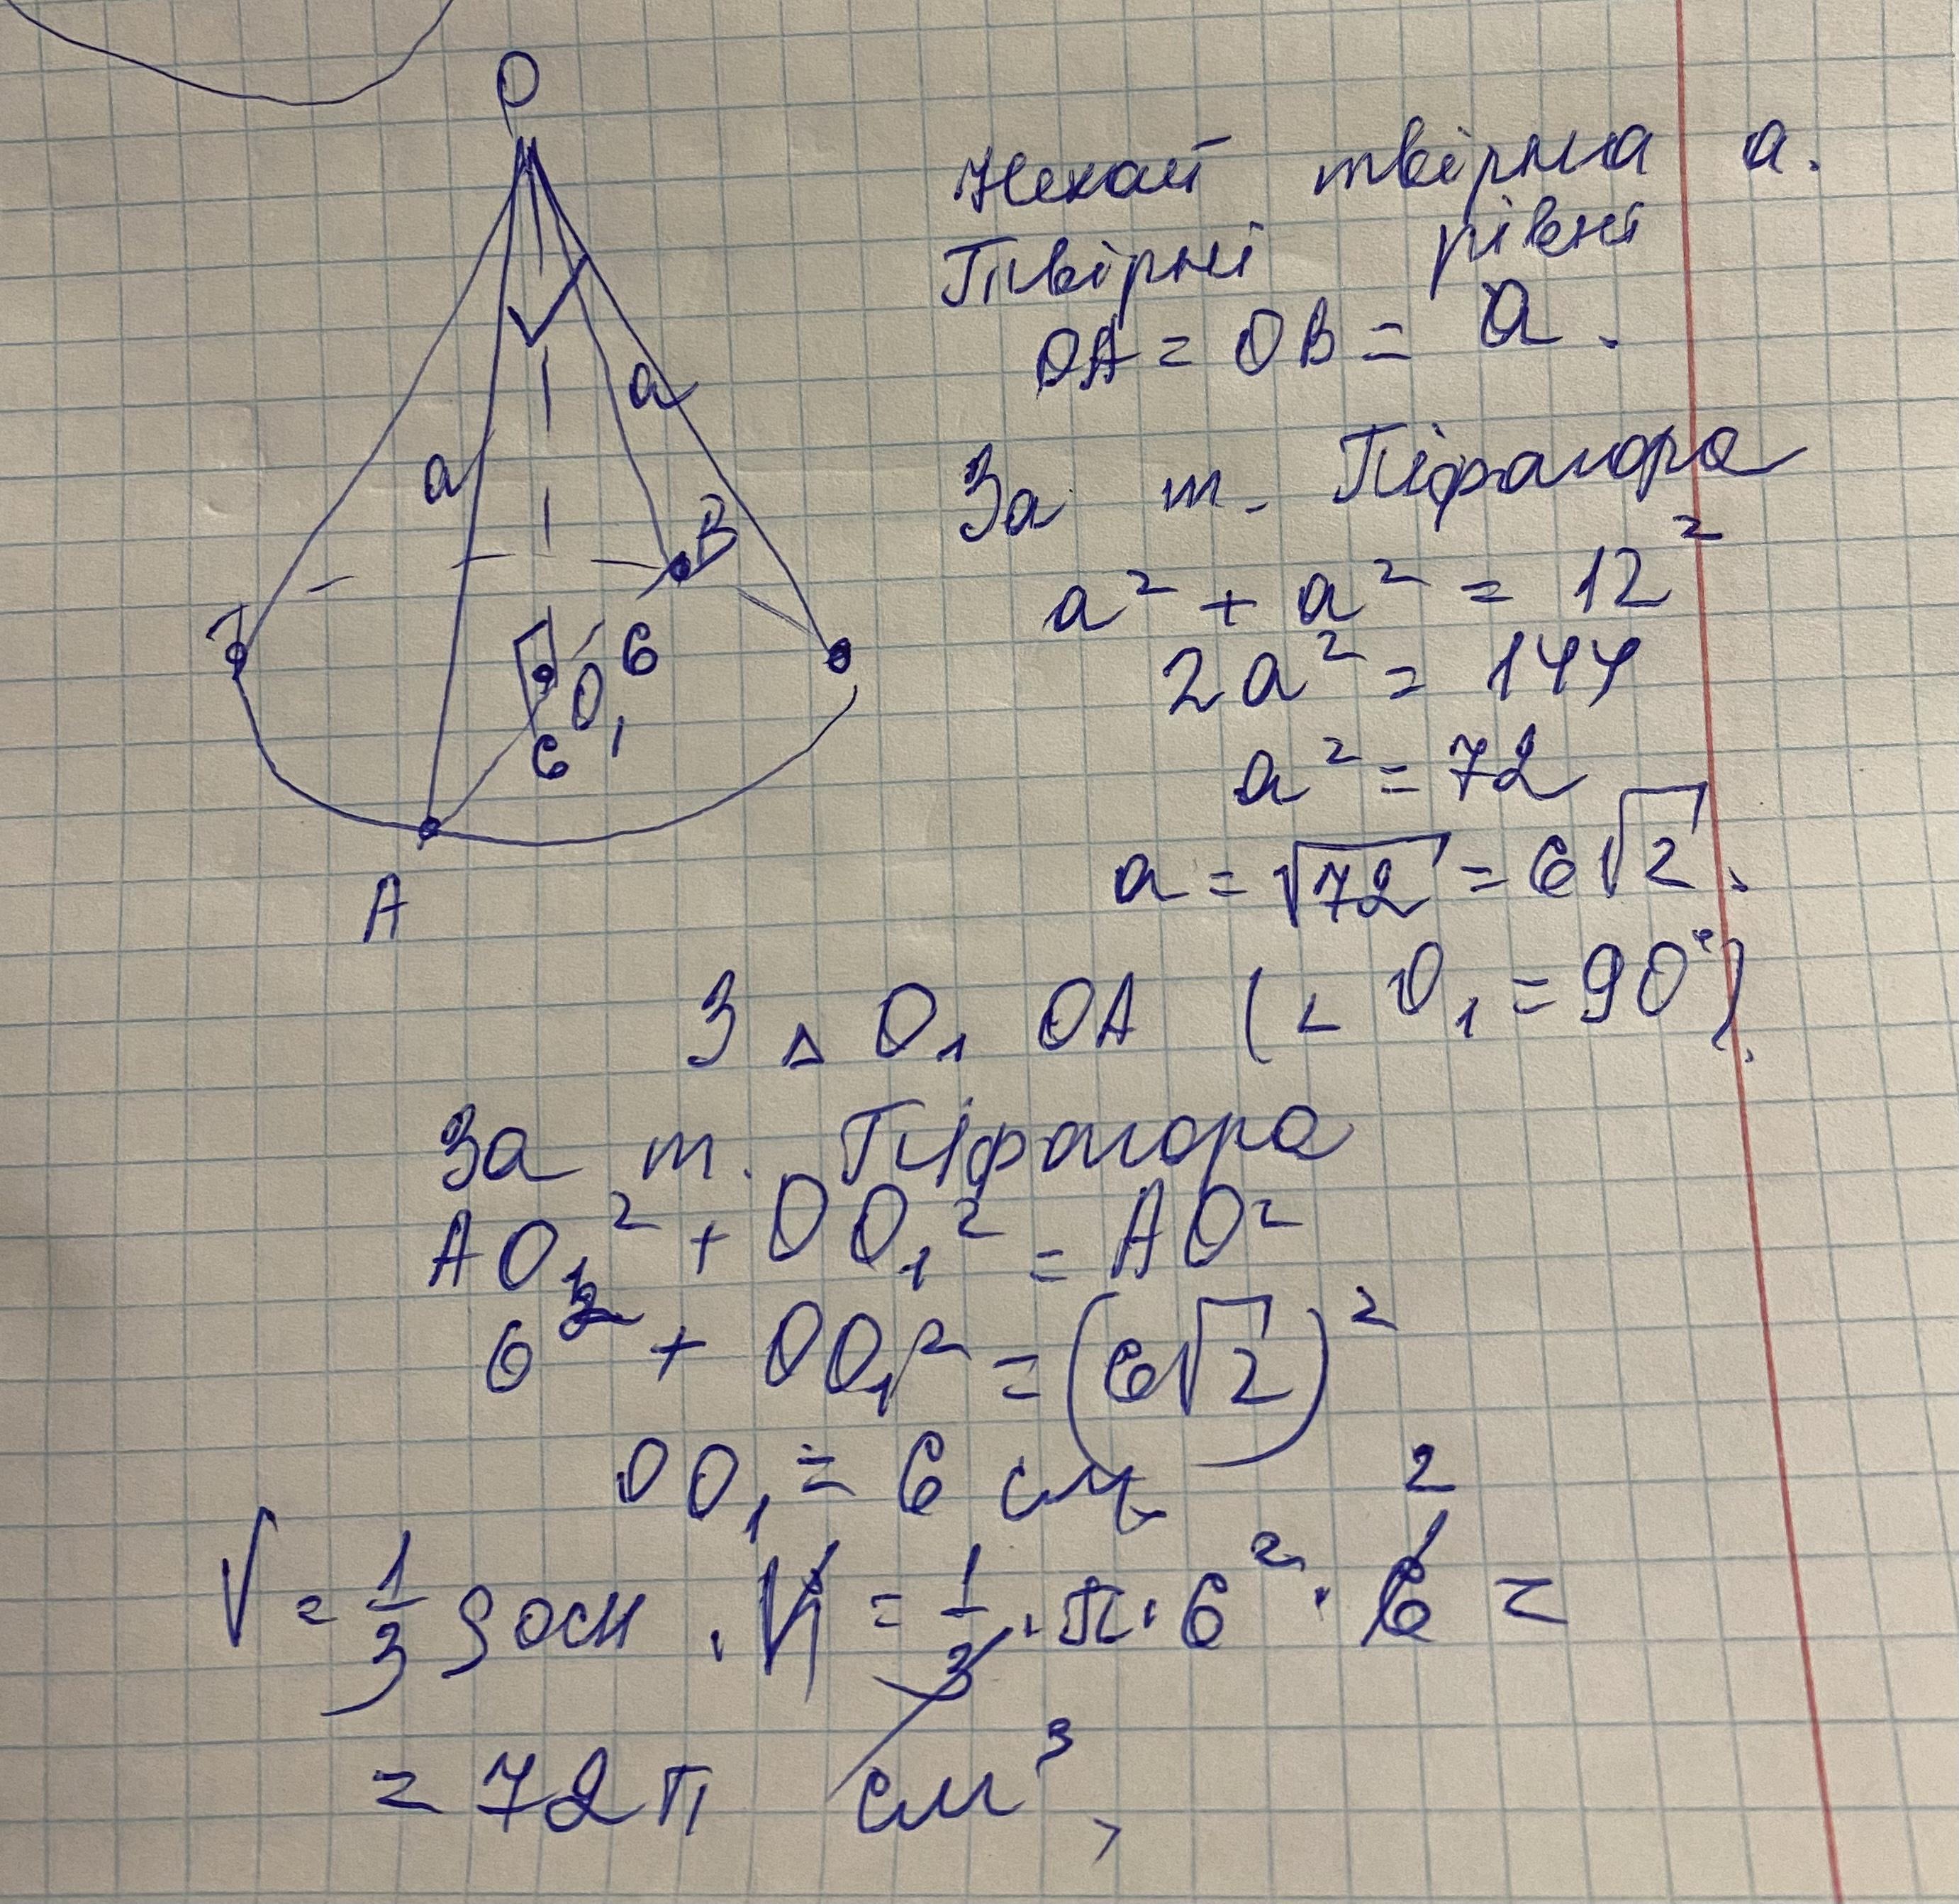 O
a
a
B
6
O₁
6
A
Нехай твірна a.
Твірні рівні
OA = OB = a.
За т. Піфагора
a² + a² = 12²
2a² = 144
a² = 72
a = √72 = 6√2.
З △ O₁ OA (∠ O₁ = 90°).
За т. Піфагора
AO₁² + OO₁² = AO²
6² + OO₁² = (6√2)²
OO₁ = 6 см
2
V = 1/3 Sосн · H = 1/3 · π · 6² · 6 =
= 72π см³,